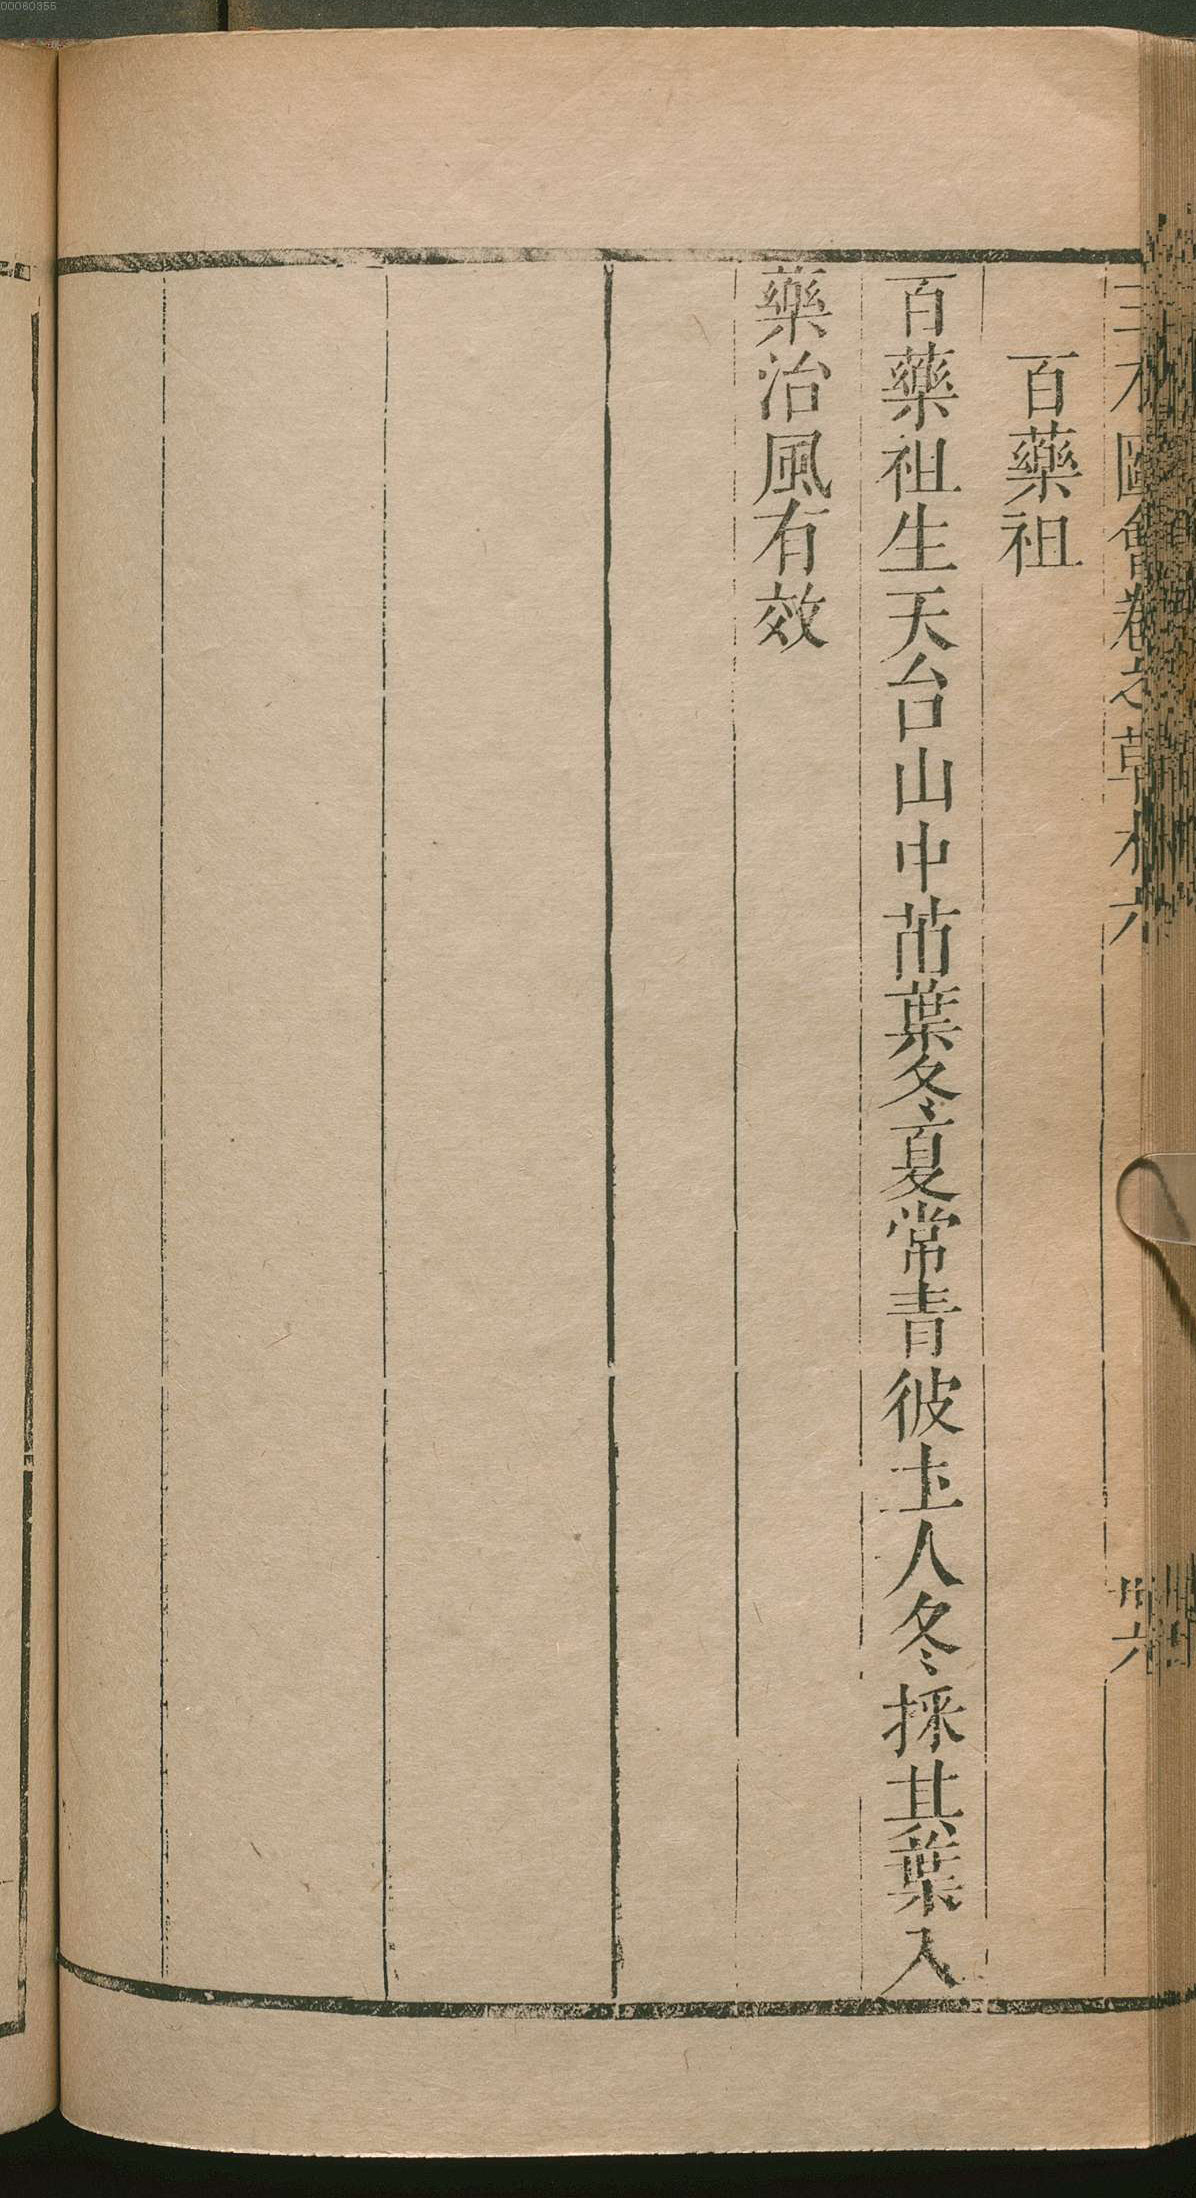 00060355
三才圖會卷之草木六
百藥祖
百藥祖生天台山中苗葉冬夏常青彼土人冬採其葉入
藥治風有效